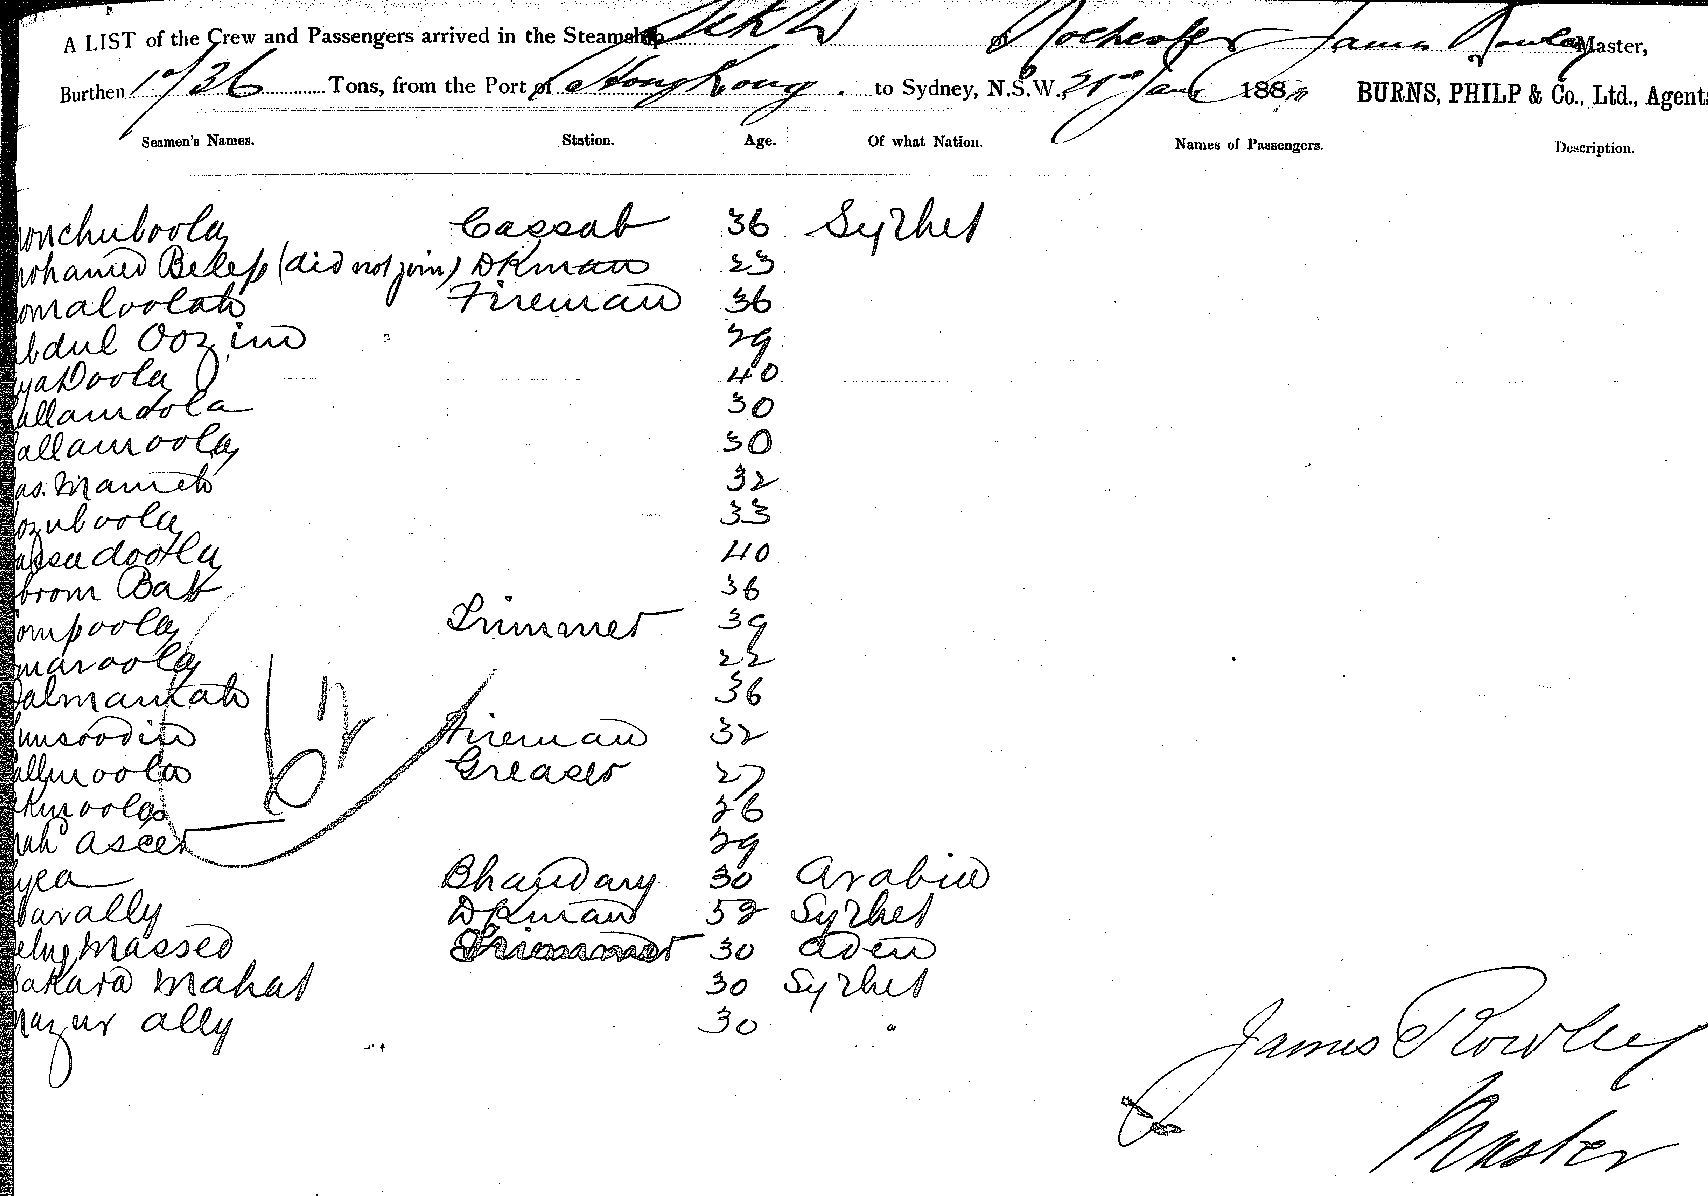 A LIST of the Crew and Passengers arrived in the Steamship of Rochester James Rowley Master,
Burthen 1736 Tons, from the Port of Hong Kong. to Sydney, N.S.W., 31st Jan 188 BURNS, PHILP & Co., Ltd., Agents
Seamen's Names. Station. Age. Of what Nation. Names of Passengers. Description.
onchuboola Cassab 36 Sylhet
mohamed (did not join) DKman 23
omaloolah Fireman 36
bdul Oozim 29
yaDoola 40
allamdola 30
allamoola 30
as. Mamets 32
ozuboola 33
40
brom Bat 36
ompoola Trimmer 39
maroola 22
almanxah 36
unsoodin Fireman 32
allmoola Greaser 27
kmoola 26
ascer 29
yea Bhandary 30 Arabia
varally DKman 52 Sylhet
Massed Trimmer 30 Aden
akara Mahat 30 Sylhet
nazur ally 30 "
62
James Rowley
Master